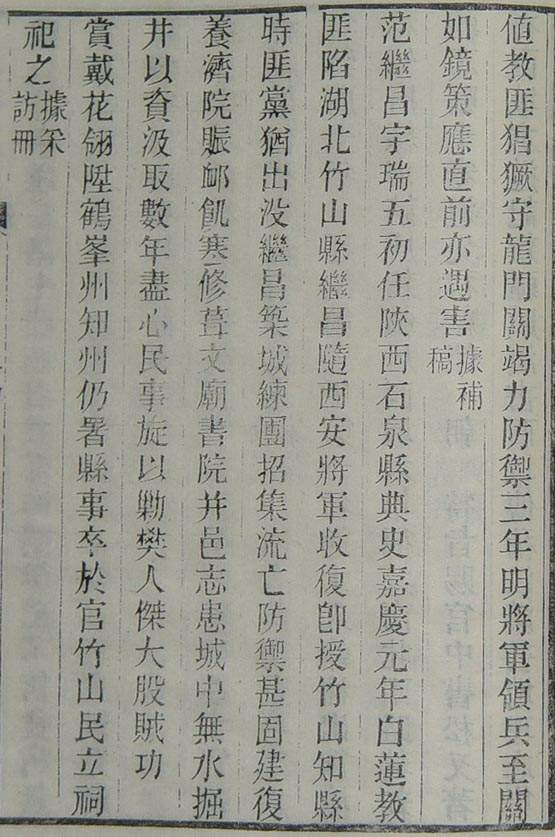 值教匪猖獗守龍門關竭力防禦三年明將軍領兵至關
如鏡策應直前亦遇害據補稿
范繼昌字瑞五初任陜西石泉縣典史嘉慶元年白蓮教
匪陷湖北竹山縣繼昌隨西安將軍收復卽授竹山知縣
時匪黨猶出沒繼昌築城練團招集流亡防禦甚固建復
養濟院賑邮飢寒修葺文廟書院并邑志患城中無水掘
井以資汲取數年盡心民事旋以勦樊人傑大股賊功
賞戴花翎陞鶴峯州知州仍署縣事卒於官竹山民立祠
祀之據采訪冊